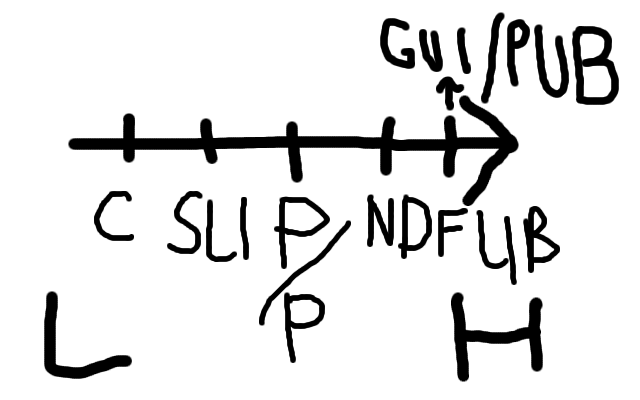 GUI/PUB
C SLI P/P NDF UB
L H